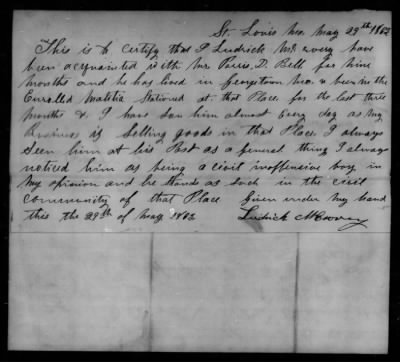 St. Louis Mo. May 29th 1863
This is to certify that I Ludrick McEvery have
been acquainted with Mr Perris D. Bell for nine
months and he has lived in Georgetown Mo. & been in the
Enrolled Malitia Stationed at that Place for the last three
months & I have saw him almost every day as my
Business is Selling goods in that Place. I always
Seen him at his Post as a general thing I always
noticed him as being a civil inoffensive boy in
my opinion and he stands as such in the civil
community of that Place Given under my hand
this the 29th of May 1863
Ludrick